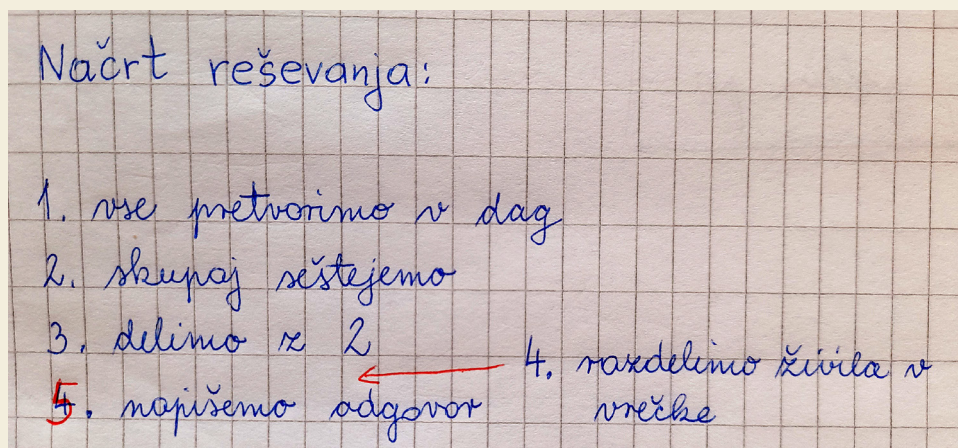 Načrt reševanja:
1. vse pretvorimo v dag
2. skupaj seštejemo
3. delimo z 2
4. razdelimo živila v
vrečke
5. napišemo odgovor